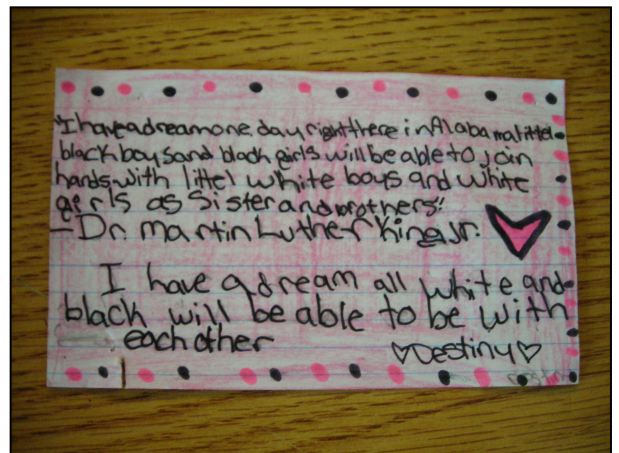 "I have a dream one day right there in Alabama littel
black boys and black girls will be able to join
hands with littel white boys and white
girls as Sister and brothers."
-Dr. martin Luther King Jr.
I have a dream all white and
black will be able to be with
each other
♡Destiny♡